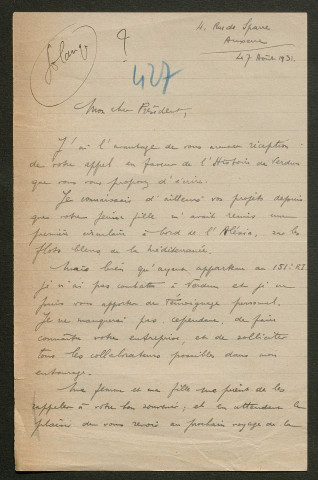 4, Rue de Sparre
Auxerre
Le 7 Août 1931.
427
Mon cher Président,
J'ai l'avantage de vous accuser réception
de votre appel en faveur de l'Histoire de Verdun
que vous vous proposez d'écrire.
Je connaissais d'ailleurs vos projets depuis
que votre jeune fille m'avait remis une
première circulaire à bord de l'Alésia, sur les
flots bleus de la Méditerranée.
Mais bien qu'ayant appartenu au 151e R.I.
je n'ai pas combattu à Verdun et je ne
puis vous apporter de témoignage personnel.
Je ne manquerai pas cependant de faire
connaître votre entreprise, et de solliciter
tous les collaborateurs possibles dans mon
entourage.
Ma femme et ma fille me prient de les
rappeler à votre bon souvenir ; et en attendant le
plaisir de vous revoir au prochain voyage de la